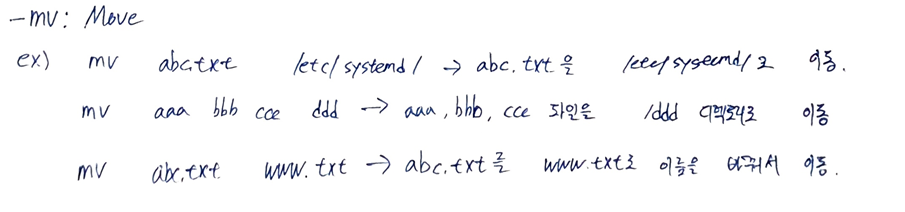 -mv: Move
ex) mv abc.txt /etc/systemd/ → abc.txt 을 /etc/systemd/ 로 이동.
mv aaa bbb ccc ddd → aaa, bbb, ccc 파일을 /ddd 디렉토리로 이동
mv abc.txt www.txt → abc.txt 를 www.txt로 이름을 바꿔서 이동.